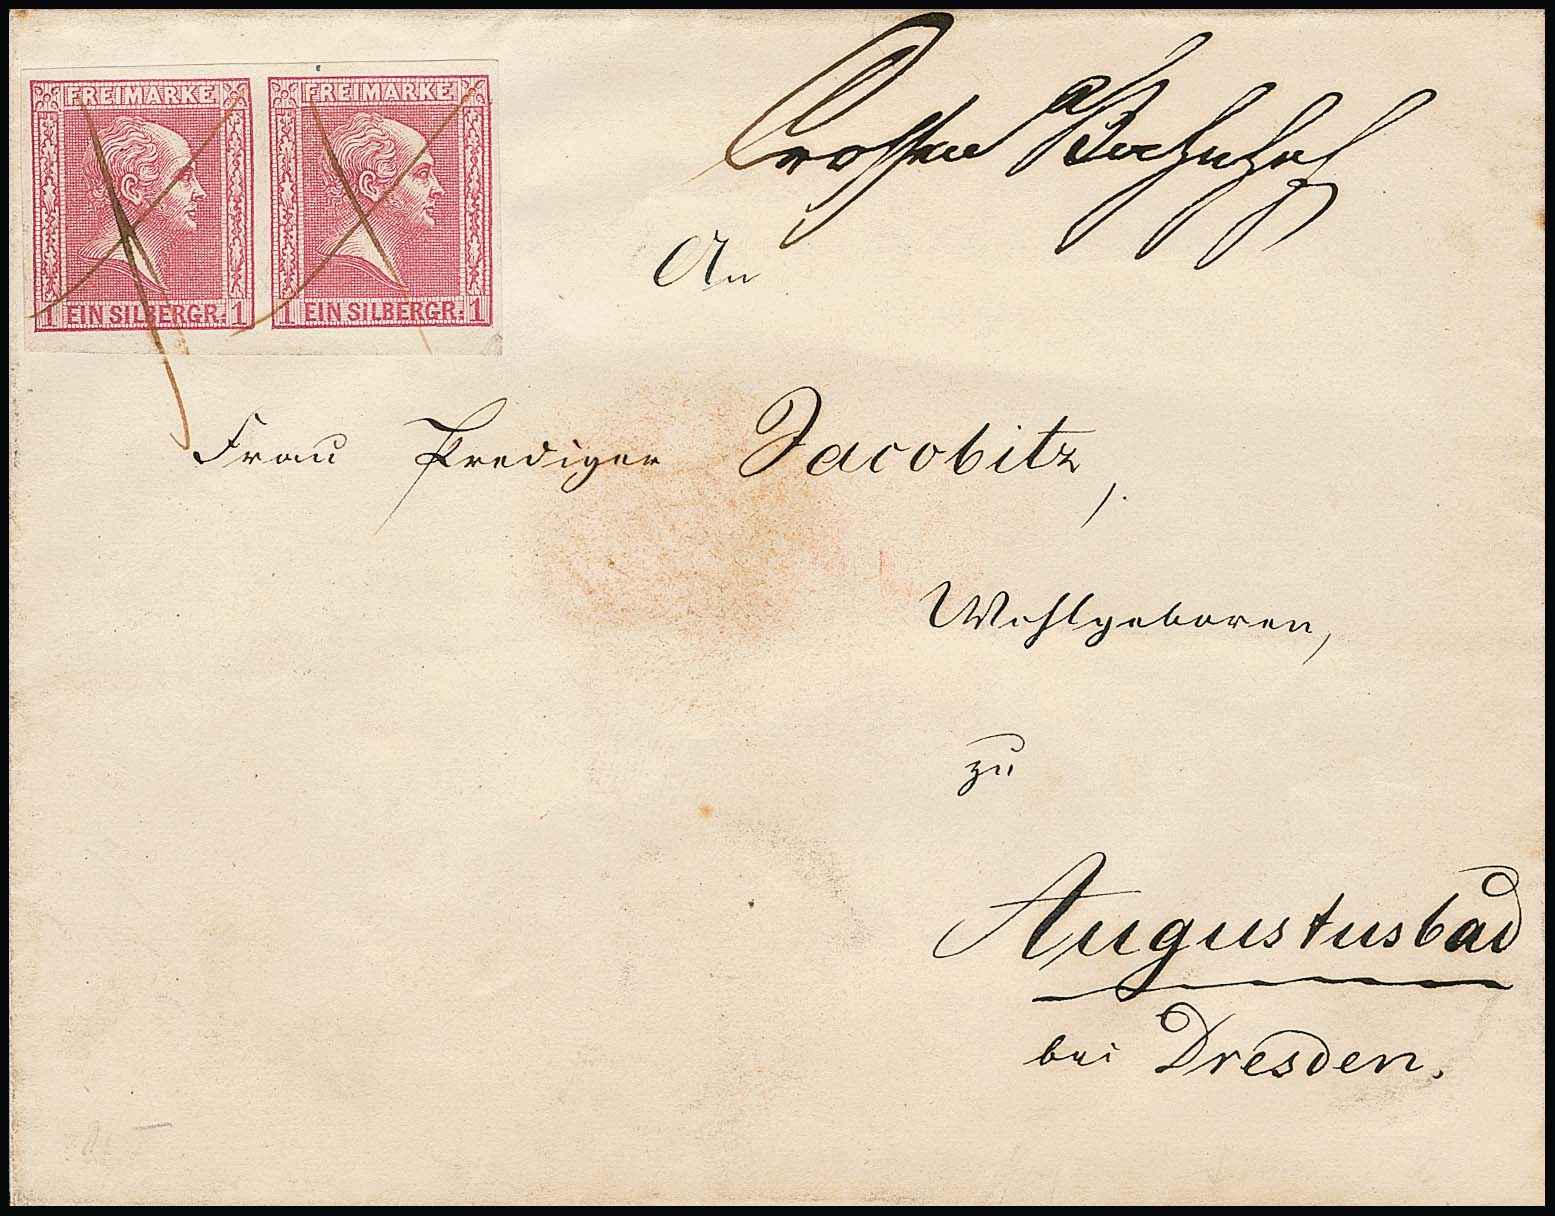 FREIMARKE FREIMARKE
1 EIN SILBERGR. 1 1 EIN SILBERGR. 1
Crossen Bahnhof
An
Frau Prediger Jacobitz,
Wohlgeboren,
zu
Augustusbad
bei Dresden.